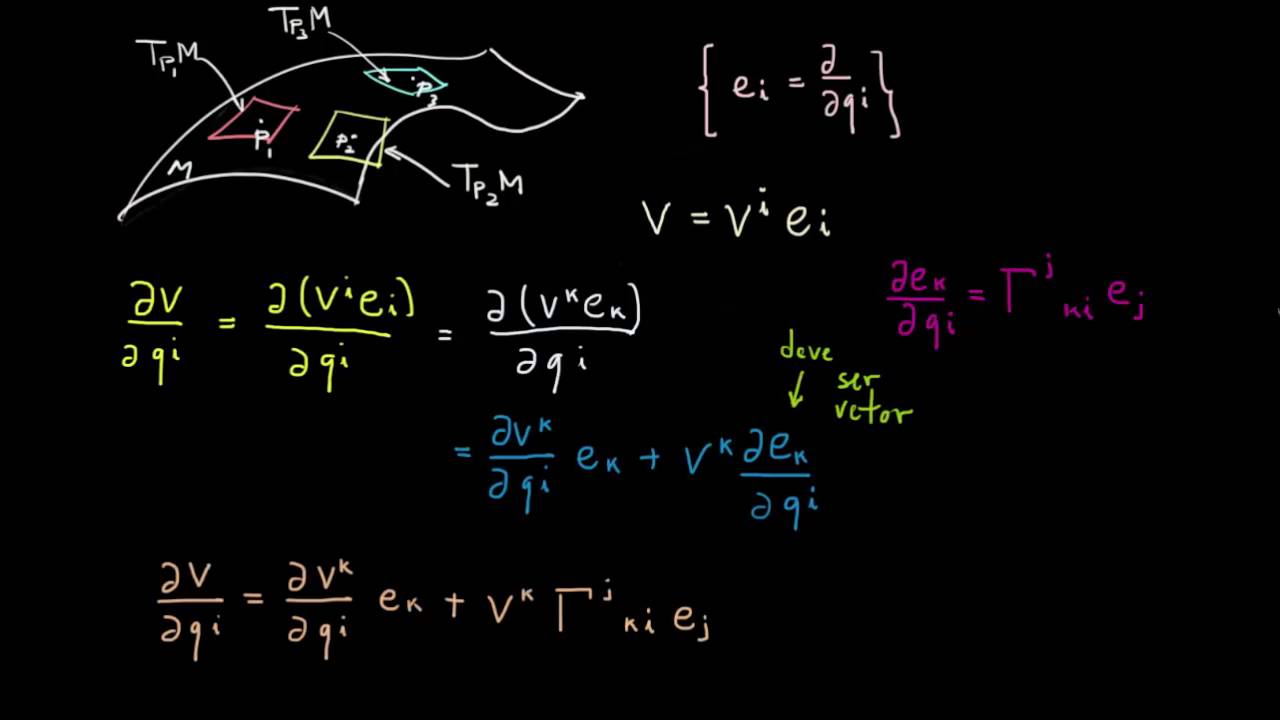 T_{P_3}M
T_{P_1}M
P_3
P_1
P_2
M
T_{P_2}M
{ e_i = ∂/∂q^i }
V = V^i e_i
∂e_k/∂q^i = Γ^j_{ki} e_j
∂V/∂q^i = ∂(V^i e_i)/∂q^i = ∂(V^k e_k)/∂q^i
deve
ser
vetor
= ∂V^k/∂q^i e_k + V^k ∂e_k/∂q^i
∂V/∂q^i = ∂V^k/∂q^i e_k + V^k Γ^j_{ki} e_j